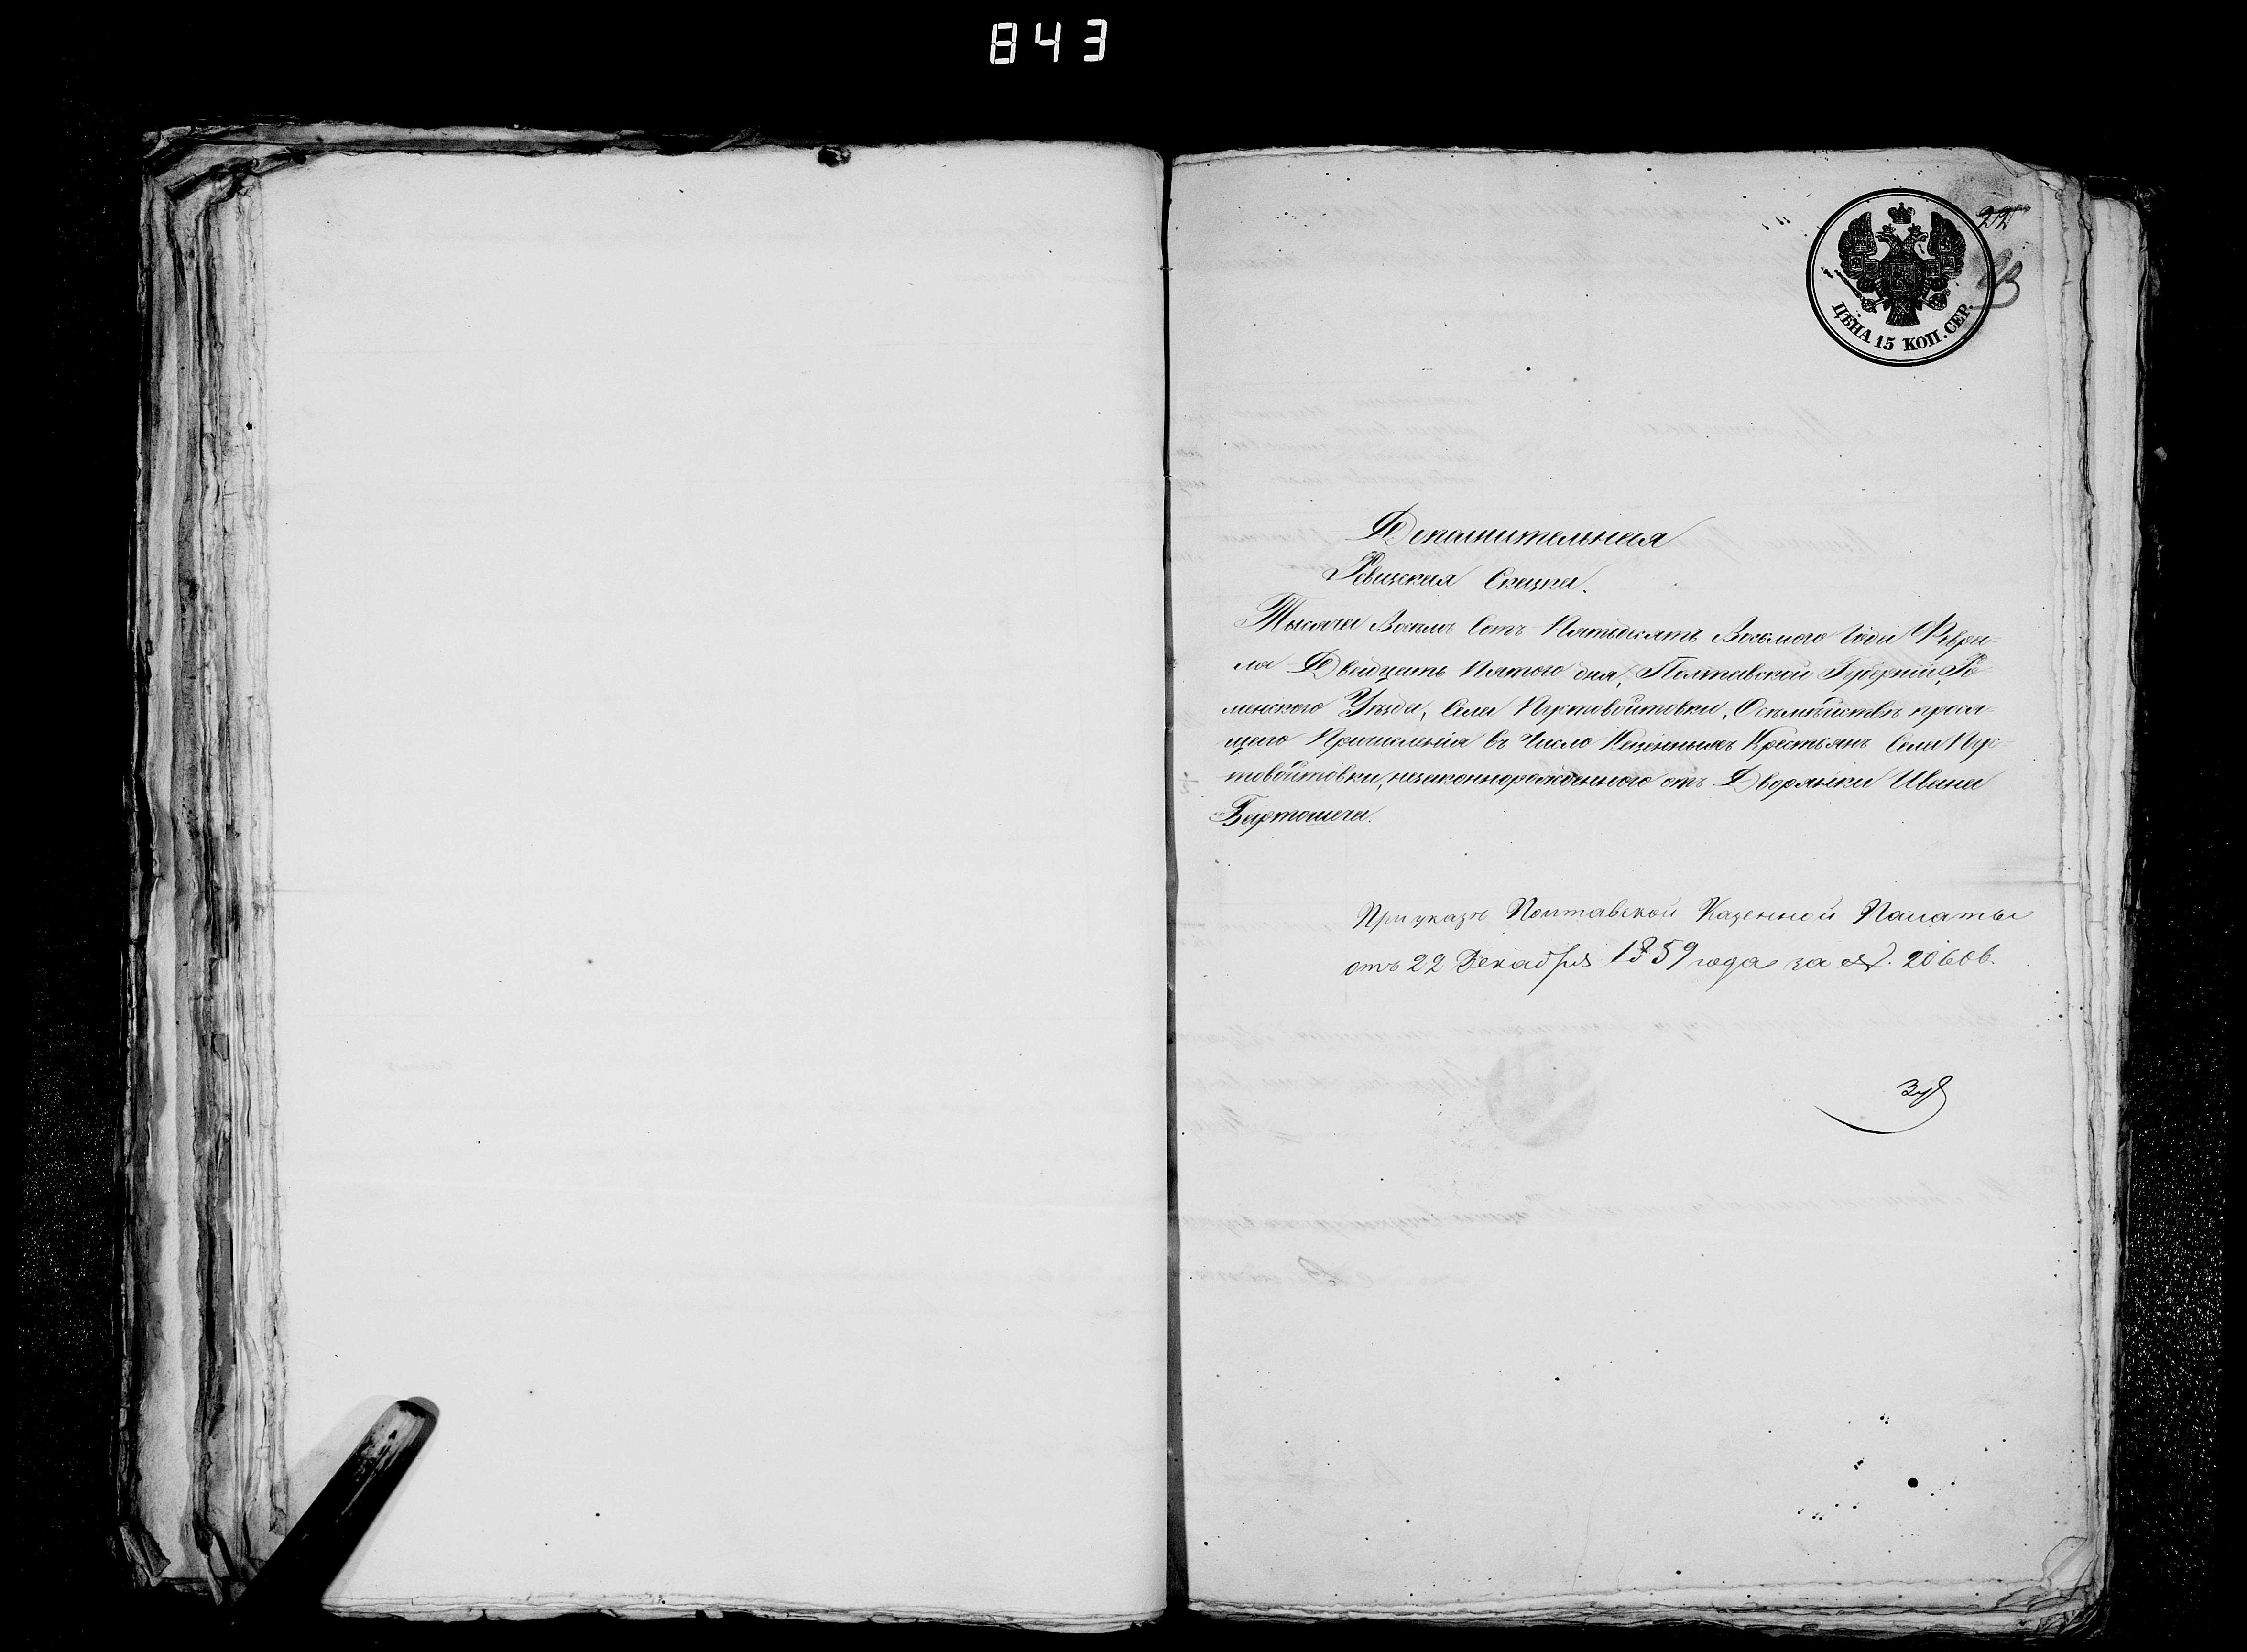 843
225
ЦѢНА 15 КОП. СЕР.
Дополнительная
Ревизская Сказка.
Тысяча Восемь Сотъ Пятьдесятъ Восьмого Года Февра-
ля Двадцать Пятого дня, Полтавской Губерніи, Ро-
менского Уѣзда, Села Пустовойтовки, О семѣйствѣ прося-
щего Причисленія въ Число Казенныхъ Крестьянъ Села Пус-
товойтовки, незаконнорожденного отъ Дворянки Ивана
Бартоша.
При указѣ Полтавской Казенной Палаты
отъ 22 Декабря 1859 года за №. 20606.